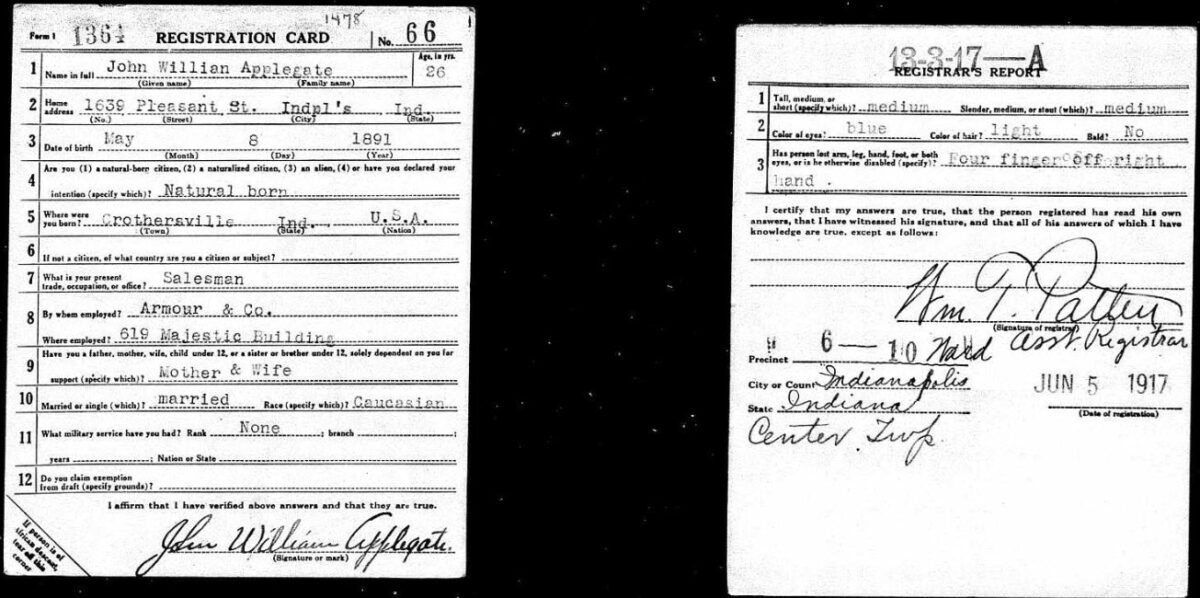 1478
Form 1 1364 REGISTRATION CARD No. 66
1 Name in full John Willian Applegate Age, in yrs. 26
(Given name) (Family name)
2 Home address 1639 Pleasant St. Indpl's Ind.
(No.) (Street) (City) (State)
3 Date of birth May 8 1891
(Month) (Day) (Year)
4 Are you (1) a natural-born citizen, (2) a naturalized citizen, (3) an alien, (4) or have you declared your
intention (specify which)? Natural born
5 Where were you born? Crothersville Ind. U.S.A.
(Town) (State) (Nation)
6 If not a citizen, of what country are you a citizen or subject?
7 What is your present trade, occupation, or office? Salesman
8 By whom employed? Armour & Co.
Where employed? 619 Majestic Building
9 Have you a father, mother, wife, child under 12, or a sister or brother under 12, solely dependent on you for
support (specify which)? Mother & Wife
10 Married or single (which)? married Race (specify which)? Caucasian
11 What military service have you had? Rank None ; branch ;
years ; Nation or State
12 Do you claim exemption
from draft (specify grounds)?
I affirm that I have verified above answers and that they are true.
John William Applegate.
(Signature or mark)
If person is of
African descent,
tear off this
corner
13-3-17—A
REGISTRAR'S REPORT
1 Tall, medium, or short (specify which)? medium Slender, medium, or stout (which)? medium
2 Color of eyes? blue Color of hair? light Bald? No
3 Has person lost arm, leg, hand, foot, or both
eyes, or is he otherwise disabled (specify)? Four finger off right
hand .
I certify that my answers are true, that the person registered has read his own
answers, that I have witnessed his signature, and that all of his answers of which I have
knowledge are true, except as follows:
Wm. T. Patten
(Signature of registrar)
Asst. Registrar
Precinct 6—10 Ward
City or County Indianapolis
State Indiana
JUN 5 1917
(Date of registration)
Center Twp.